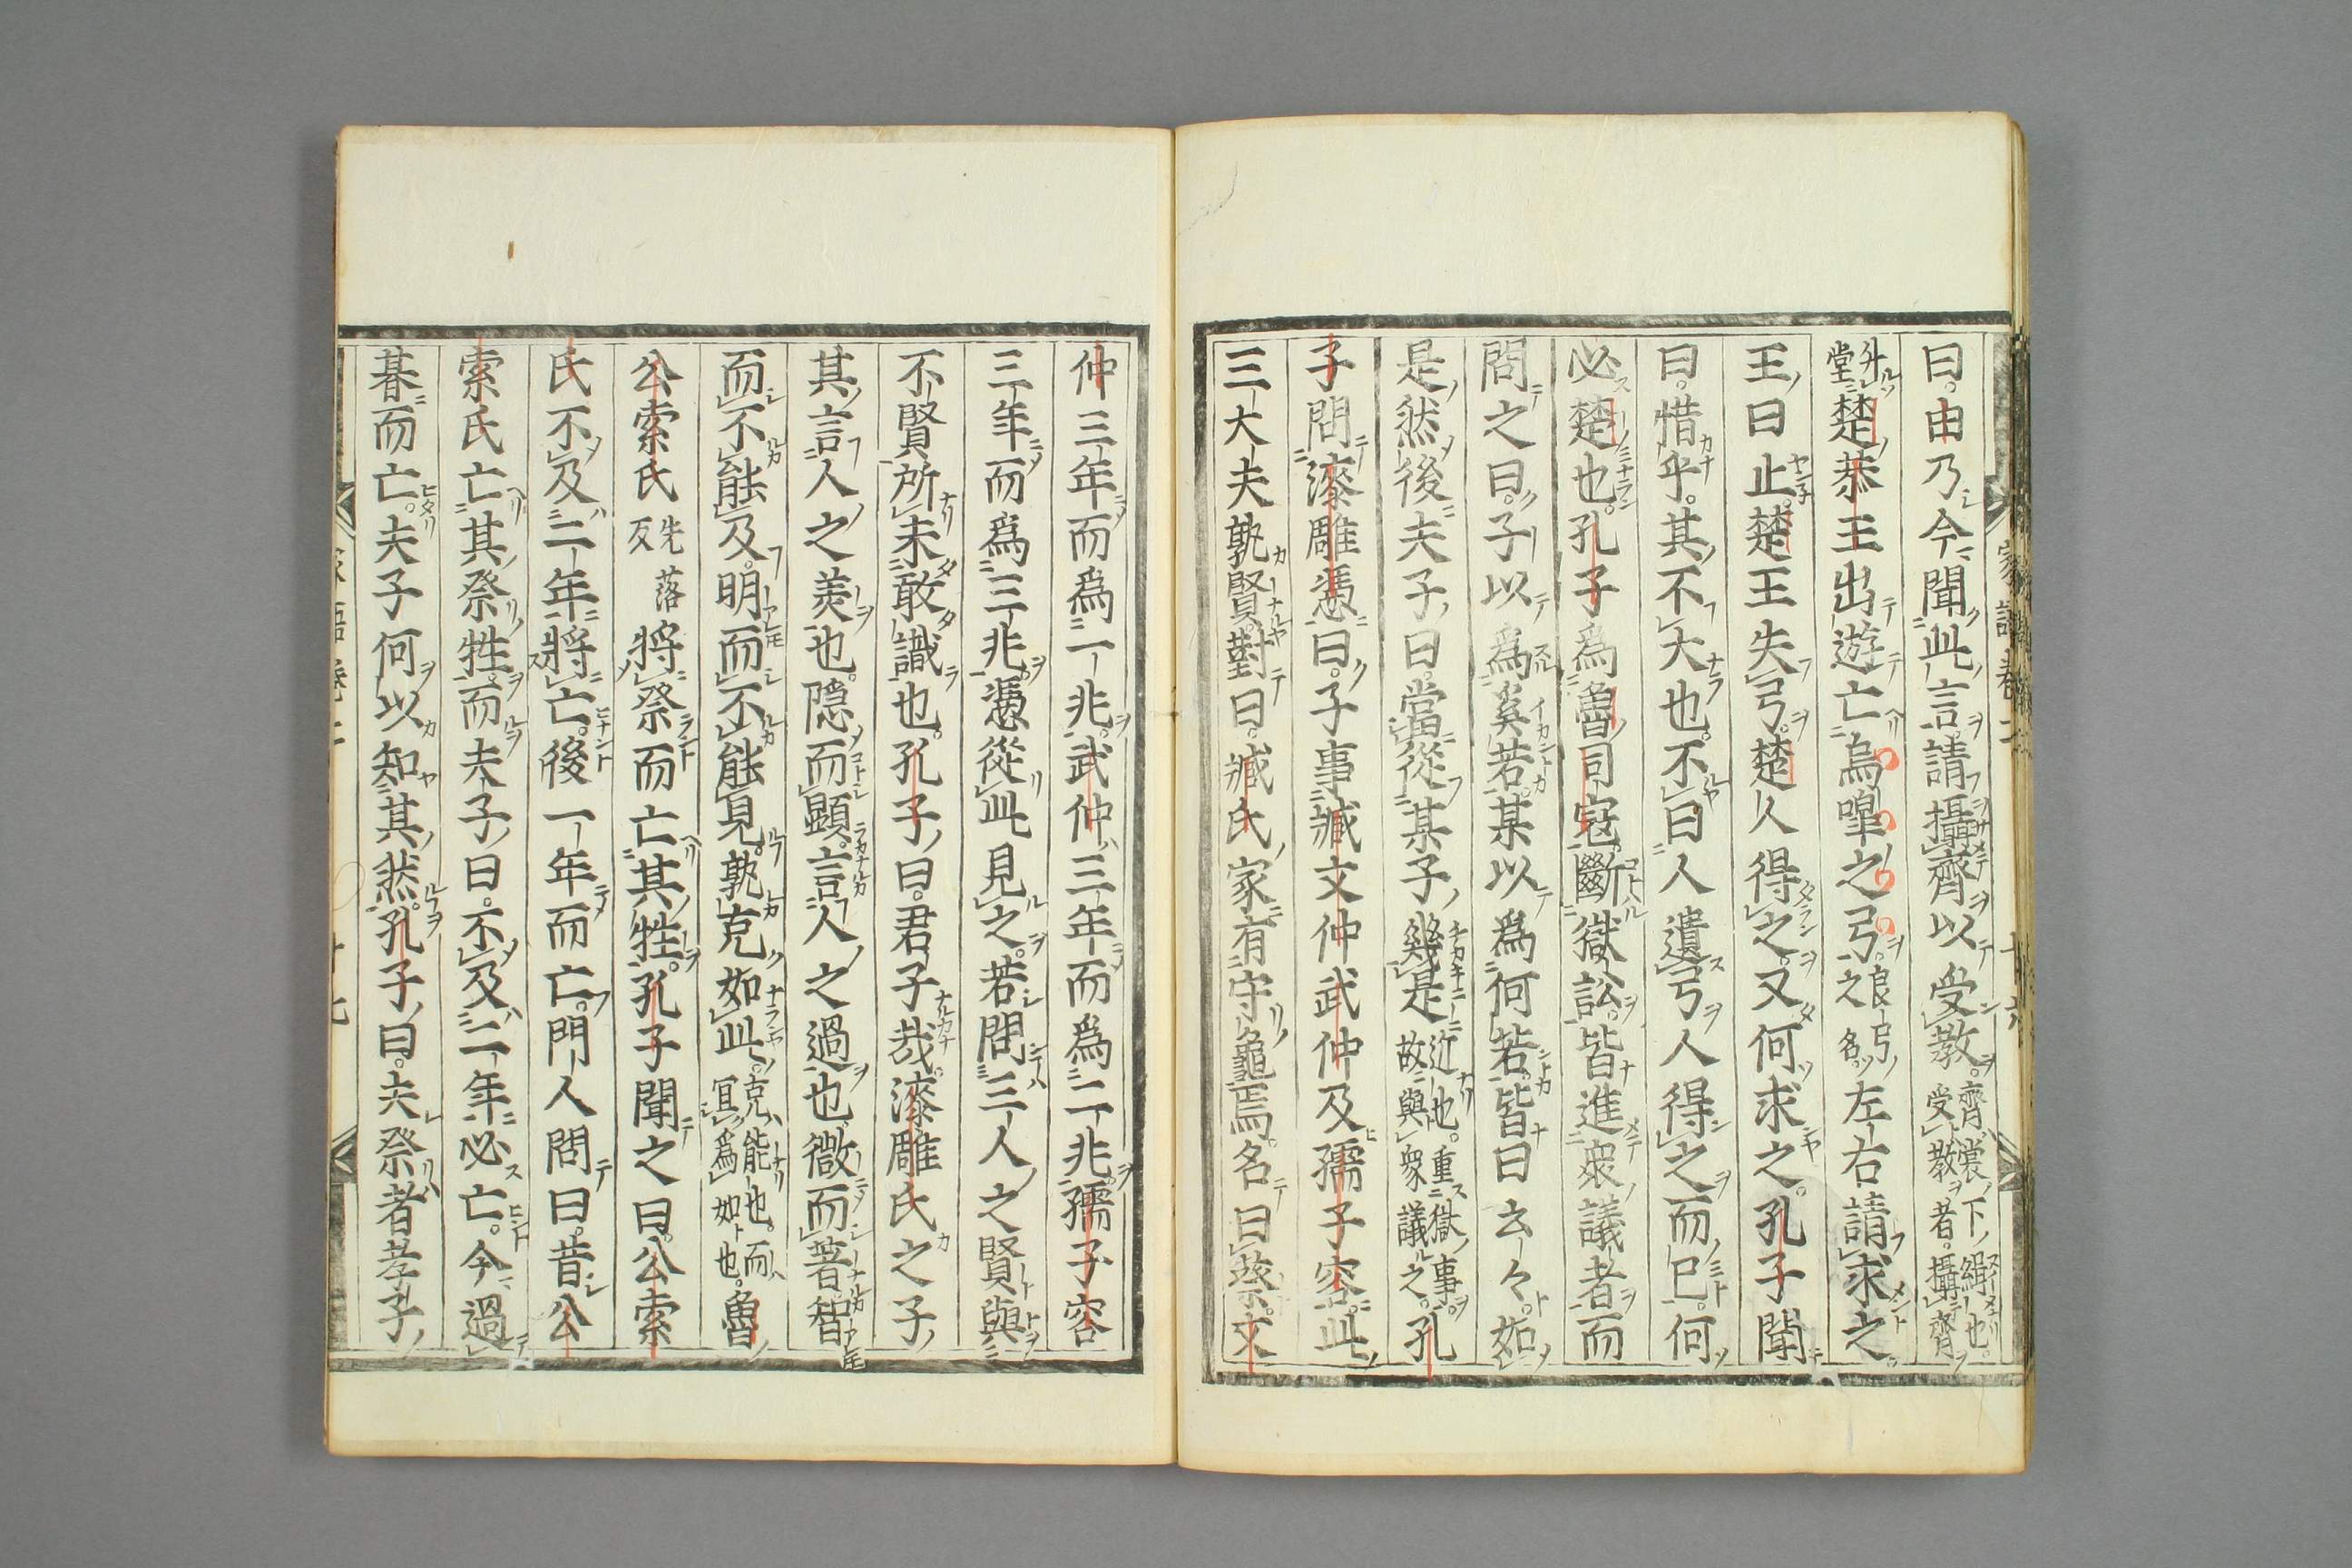 曰。由乃今聞此言。請攝齊以受教。齊裳下緝也。受教者。攝齊
升堂楚恭王出遊亡烏嘷之弓。良弓之名左右請求之。
王曰止。楚王失弓。楚人得之。又何求之。孔子聞
曰。惜乎。其不大也。不曰人遺弓人得之而已。何
必楚也。孔子爲魯司寇。斷獄訟。皆進衆議者而
問之曰。子以爲奚若。某以爲何若。皆曰云々。如
是然後夫子曰。當從某子幾是近也。重獄事。故與衆議之。孔
子問漆雕憑曰。子事臧文仲武仲及孺子容。此
三大夫孰賢。對曰。臧氏家有守龜焉。名曰蔡。文
仲三年而爲一兆。武仲三年而爲二兆。孺子容
三年而爲三兆。憑從此見之。若問三人之賢與
不賢所未敢識也。孔子曰。君子哉。漆雕氏之子
其言人之美也。隱而顯。言人之過也。微而著。智
而不能及。明而不能見。孰克如此。克能也。而冝爲如也。魯
公索氏先落反將祭而亡其牲。孔子聞之曰。公索
氏不及二年將亡。後一年而亡。門人問曰。昔公
索氏亡其祭牲。而夫子曰。不及二年必亡。今過
朞而亡。夫子何以知其然。孔子曰。夫祭者孝子